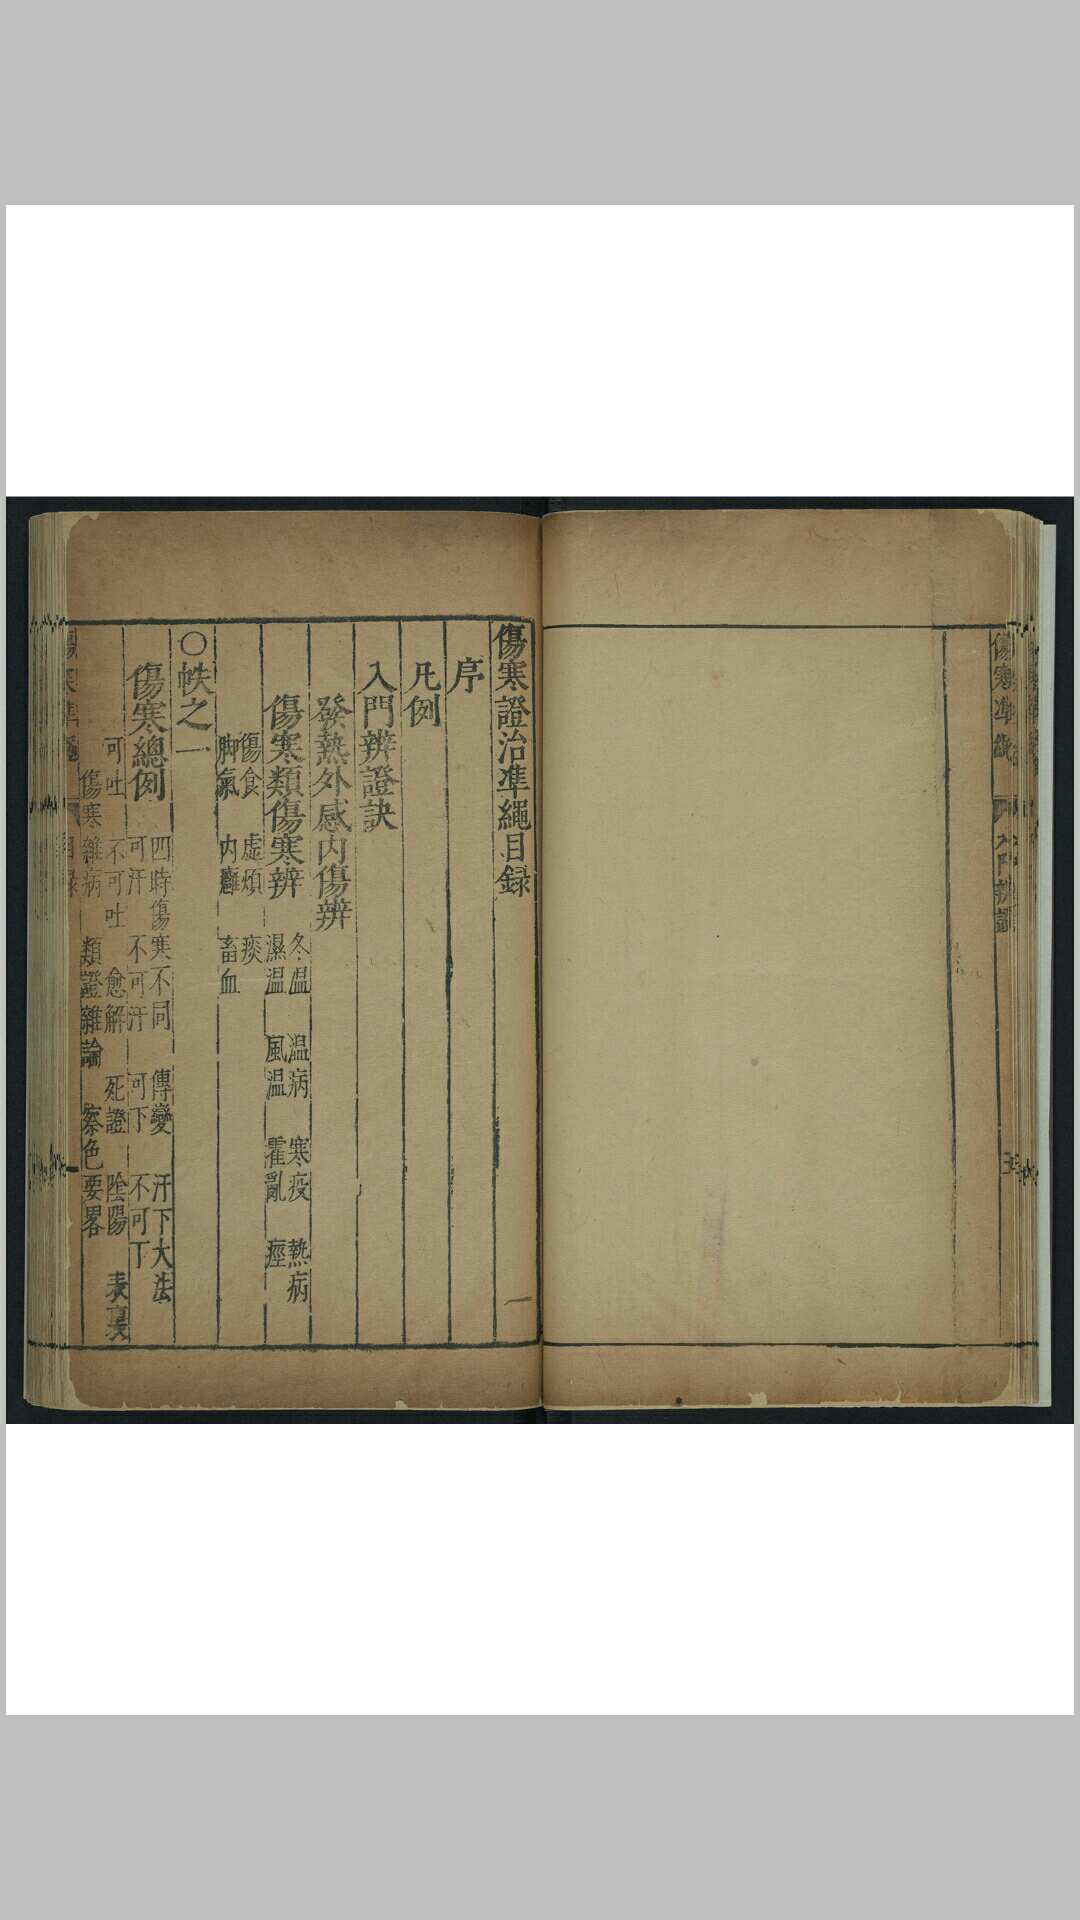 傷寒準繩
入門辨證
傷寒證治準繩目録
序
凡例
入門辨證訣
發熱外感内傷辨
傷寒類傷寒辨
冬温 温病 寒疫 熱病
濕温 風温 霍亂 痙
傷食 虛煩 痰
脚氣 内癰 畜血
○帙之一
傷寒總例
四時傷寒不同 傳變 汗下大法
可汗 不可汗 可下 不可下
可吐 不可吐 愈解 死證 陰陽 表裏
傷寒雜病 類證雜論 察色要畧